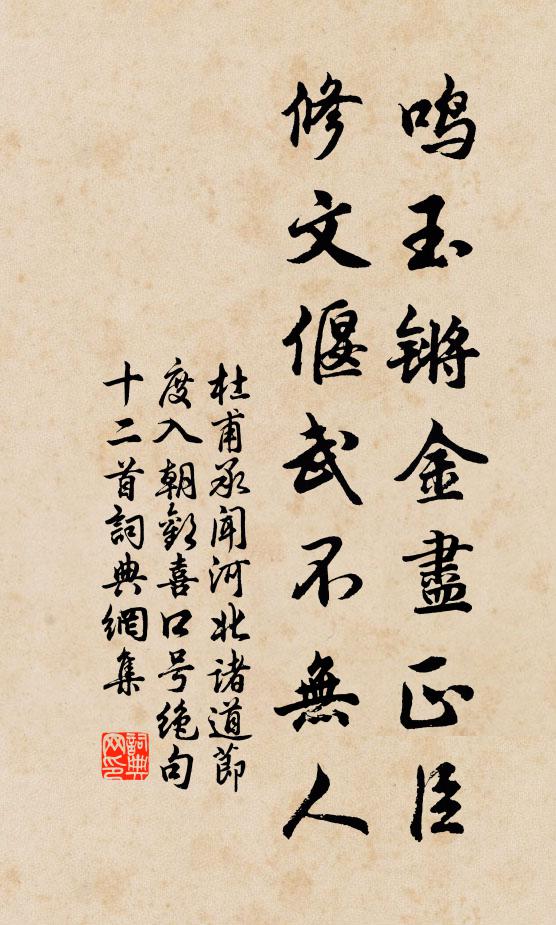 鳴玉鏘金盡正臣
修文偃武不無人
杜甫承聞河北諸道節
度入朝歡喜口号絶句
十二首詞典網集
詞典網印